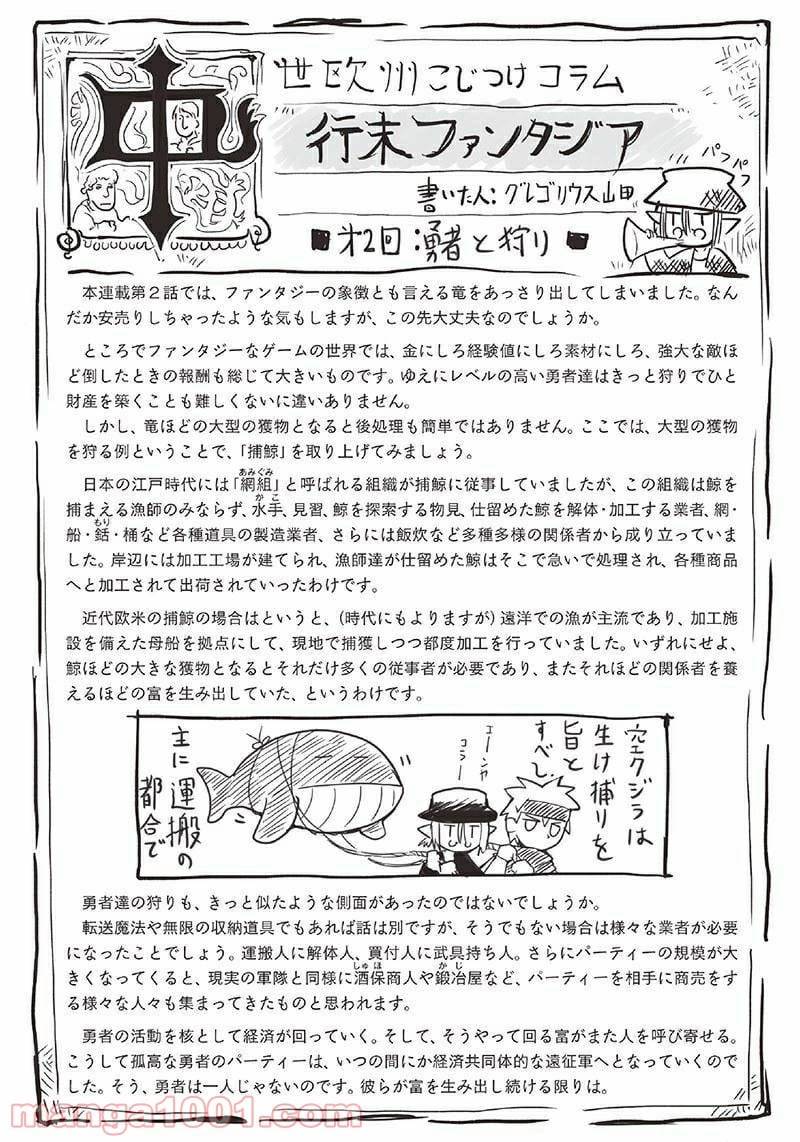 中世欧州こじつけコラム
行末ファンタジア
パフパフ
書いた人：グレゴリウス山田
第2回：勇者と狩り
本連載第２話では、ファンタジーの象徴とも言える竜をあっさり出してしまいました。なん
だか安売りしちゃったような気もしますが、この先大丈夫なのでしょうか。
ところでファンタジーなゲームの世界では、金にしろ経験値にしろ素材にしろ、強大な敵ほ
ど倒したときの報酬も総じて大きいものです。ゆえにレベルの高い勇者達はきっと狩りでひと
財産を築くことも難しくないに違いありません。
しかし、竜ほどの大型の獲物となると後処理も簡単ではありません。ここでは、大型の獲物
を狩る例ということで、「捕鯨」を取り上げてみましょう。
あみぐみ
日本の江戸時代には「網組」と呼ばれる組織が捕鯨に従事していましたが、この組織は鯨を
かこ
捕まえる漁師のみならず、水手、見習、鯨を探索する物見、仕留めた鯨を解体・加工する業者、網・
もり
船・銛・桶など各種道具の製造業者、さらには飯炊など多種多様の関係者から成り立っていま
した。岸辺には加工工場が建てられ、漁師達が仕留めた鯨はそこで急いで処理され、各種商品
へと加工されて出荷されていったわけです。
近代欧米の捕鯨の場合はというと、（時代にもよりますが）遠洋での漁が主流であり、加工施
設を備えた母船を拠点にして、現地で捕獲しつつ都度加工を行っていました。いずれにせよ、
鯨ほどの大きな獲物となるとそれだけ多くの従事者が必要であり、またそれほどの関係者を養
えるほどの富を生み出していた、というわけです。
空クジラは
生け捕りを
旨と
すべし
エーンヤ
コラー
主に運搬の
都合で
勇者達の狩りも、きっと似たような側面があったのではないでしょうか。
転送魔法や無限の収納道具でもあれば話は別ですが、そうでもない場合は様々な業者が必要
になったことでしょう。運搬人に解体人、買付人に武具持ち人。さらにパーティーの規模が大
しゅほ かじ
きくなってくると、現実の軍隊と同様に酒保商人や鍛冶屋など、パーティーを相手に商売をす
る様々な人々も集まってきたものと思われます。
勇者の活動を核として経済が回っていく。そして、そうやって回る富がまた人を呼び寄せる。
こうして孤高な勇者のパーティーは、いつの間にか経済共同体的な遠征軍へとなっていくので
した。そう、勇者は一人じゃないのです。彼らが富を生み出し続ける限りは。
manga1001.com